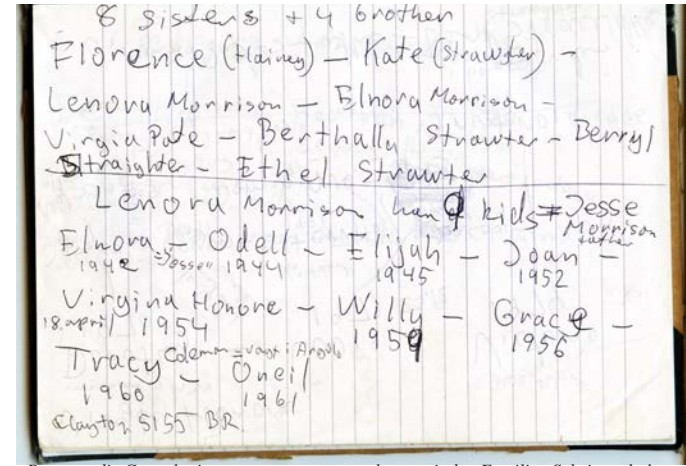 8 sisters + 4 brother
Florence (Hainey) – Kate (Strawder) –
Lenora Morrison – Elnora Morrison –
Virgia Pate – Berthally Strawter – Berryl
Straighter – Ethel Strawter
Lenora Morrison han 9 kids = Jesse
Morrison
father
Elnora – Odell – Elijah – Joan –
1942 = Jessell 1944 1945 1952
Virgina Honore – Willy – Grace –
18. april 1954 1959 1956
Tracy Coleman = vagt i Angola
– Oneil
1960 1961
Clayton 5155 BR